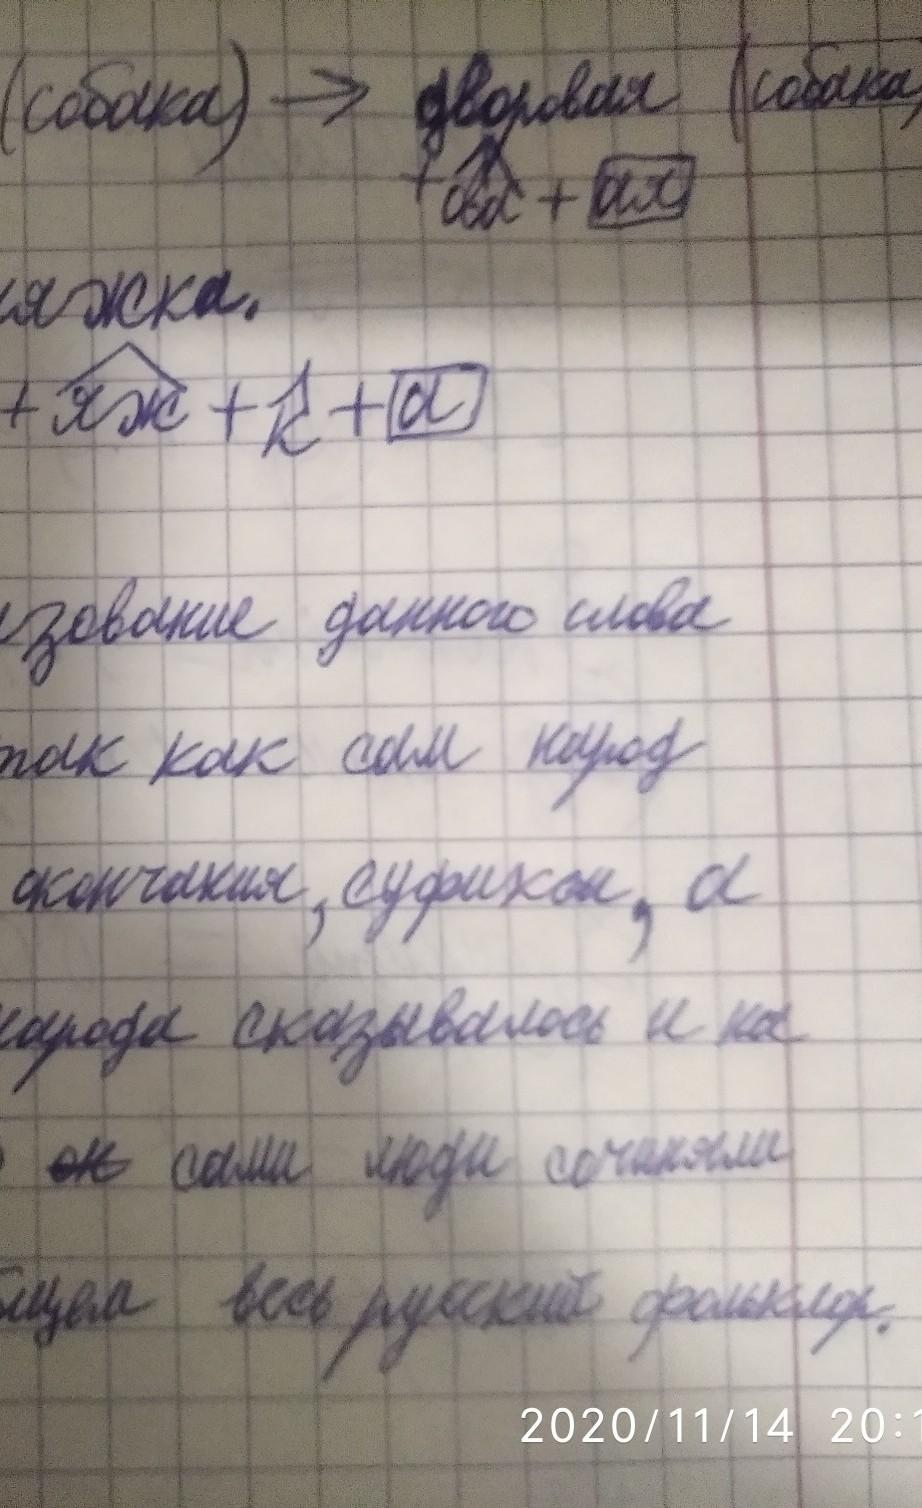 (собака) → дворовая (собака
+ ова + ая
няжка.
+ яж + к + а
зование данного слова
так как сам народ
окончания, суфиксы, а
народа сказывалось и на
сами люди сочиняли
бщем весь русский фольклор.
2020/11/14 20:1